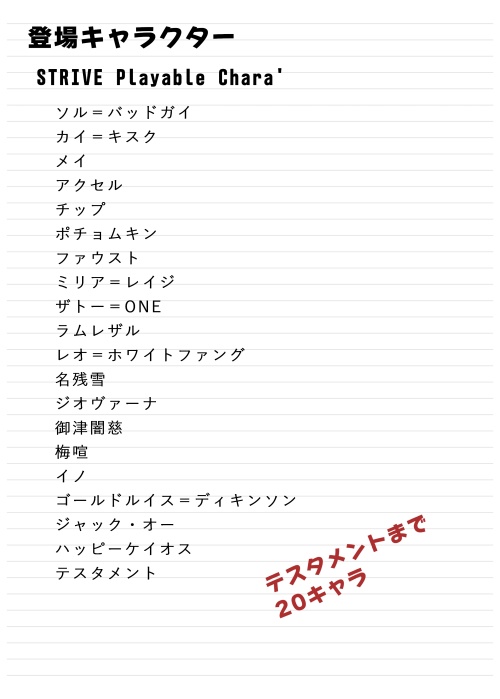 登場キャラクター
STRIVE Playable Chara'
ソル＝バッドガイ
カイ＝キスク
メイ
アクセル
チップ
ポチョムキン
ファウスト
ミリア＝レイジ
ザトー＝ONE
ラムレザル
レオ＝ホワイトファング
名残雪
ジオヴァーナ
御津闇慈
梅喧
イノ
ゴールドルイス＝ディキンソン
ジャック・オー
ハッピーケイオス
テスタメント
テスタメントまで
20キャラ